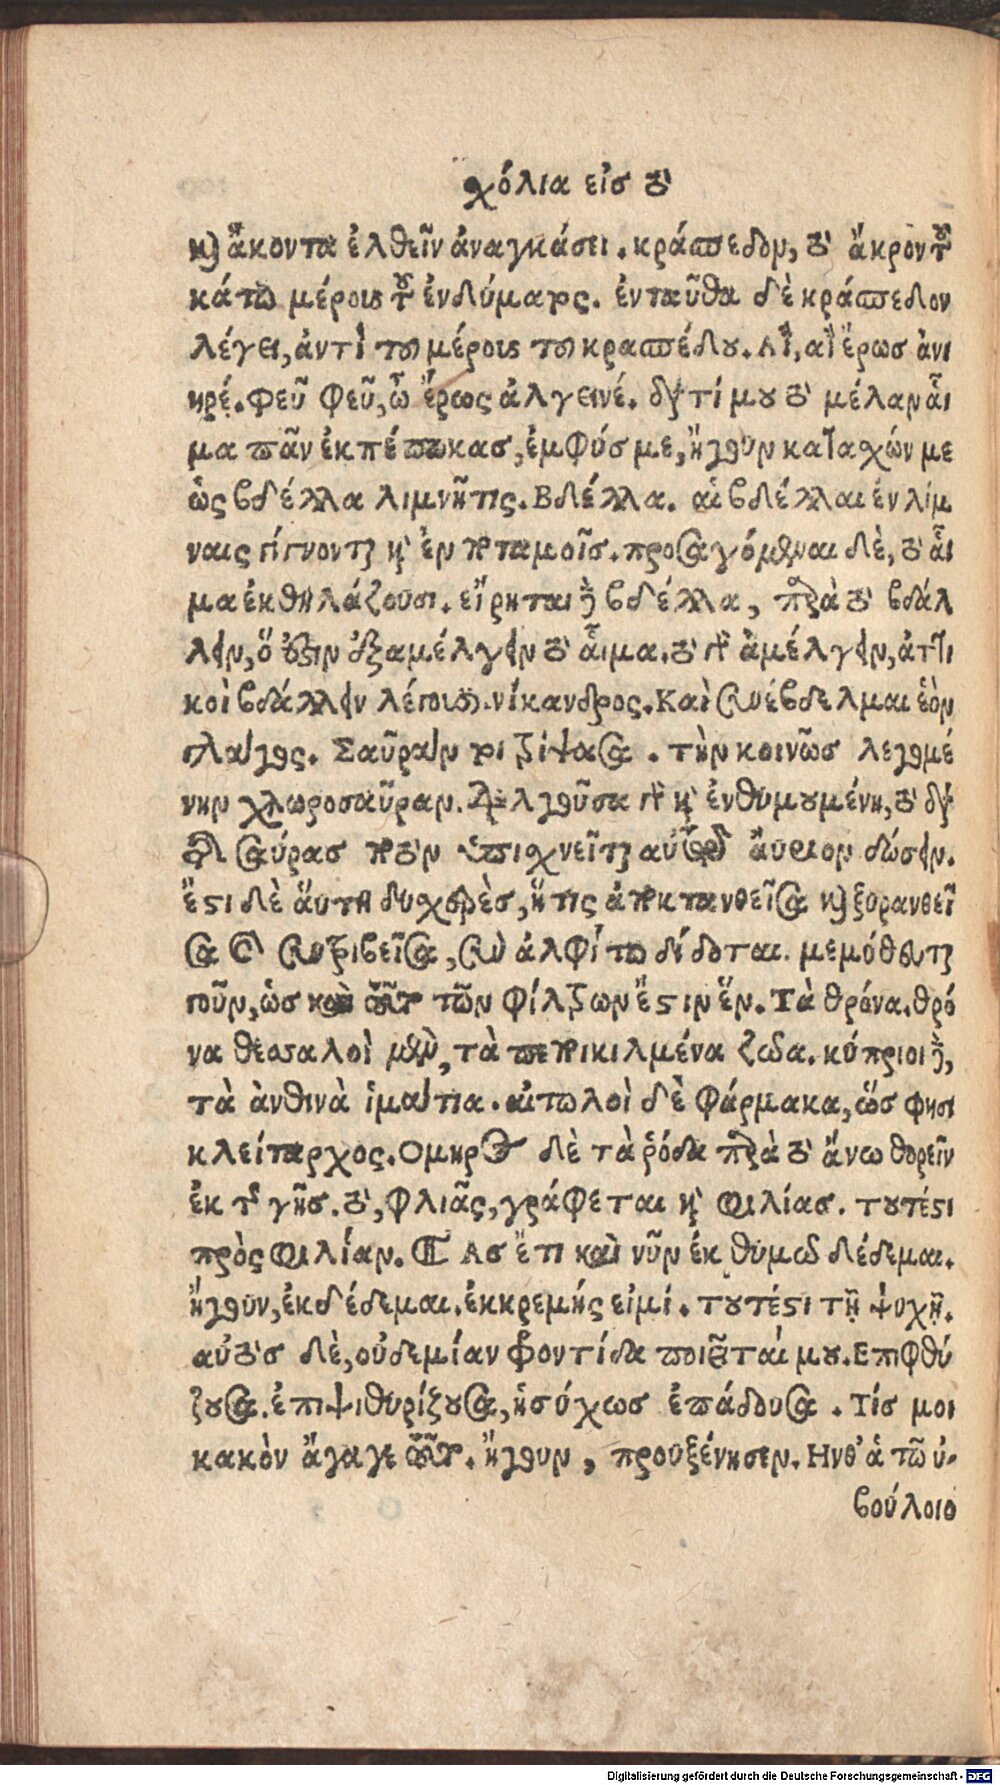 χόλια εἰς τὸ
καὶ ἄκοντα ἐλθεῖν ἀναγκάσει. κράσπεδον, τὸ ἄκρον τοῦ
κάτω μέρους τοῦ ἐνδύματος. ἐνταῦθα δὲ κράσπεδον
λέγει, ἀντὶ τοῦ μέρους τοῦ κρασπέδου. Αἲ, αἲ ἔρως ἀνι
ηρέ. φεῦ φεῦ, ὦ ἔρως ἀλγεινέ. διατί μου τὸ μέλαν αἷ
μα πᾶν ἐκπέπωκας, ἐμφύς με, ἤγουν κατασχών με
ὡς βδέλλα λιμνῆτις. Βδέλλα. αἱ βδέλλαι ἐν λίμ
ναις γίγνονται καὶ ἐν ποταμοῖς. προσαγόμεναι δὲ, τὸ αἷ
μα ἐκθηλάζουσι. εἴρηται δὲ βδέλλα, παρὰ τὸ βδάλ
λειν, ὅ ἐστιν ἐξαμέλγειν τὸ αἷμα. τὸ γὰρ ἀμέλγειν, ἀττι
κοὶ βδάλλειν λέγουσι. νίκανδρος. Καὶ συνέβδελμαι ἑὸν
γλαγος. Σαῦράν τοι τρίψασα. τὴν κοινῶς λεγομέ
νην χλωροσαῦραν. ἀλγοῦσα γὰρ καὶ ἐνθυμουμένη, τὸ διὰ
τῆς σαύρας ποτὸν ὑπισχνεῖται αὐτῷ αὔριον δώσειν.
ἔστι δὲ αὕτη δυσχερὲς, ἥτις ἀποκτανθεῖσα καὶ ξηρανθεῖ
σα καὶ συντριβεῖσα, σὺν ἀλφίτῳ δίδοται. μεμόθευται
γοῦν, ὡς καὶ τοῦτο τῶν φίλτρων ἔστιν ἕν. Τὰ θρόνα. θρό
να θεσσαλοὶ μὲν, τὰ πεποικιλμένα ζῶδα. κύπριοι δὲ,
τὰ ἀνθινὰ ἱμάτια. αἰτωλοὶ δὲ φάρμακα, ὥς φησι
κλείταρχος. Ομηρος δὲ τὰ ῥόδα παρὰ τὸ ἄνω θορεῖν
ἐκ τῆς γῆς. τὸ, φλιᾶς, γράφεται καὶ φιλίας. τουτέστι
πρὸς φιλίαν. ¶ Ας ἔτι καὶ νῦν ἐκ θυμῶ δέδεμαι.
ἤγουν, ἐκδέδεμαι. ἐκκρεμής εἰμί. τουτέστι τῇ ψυχῇ.
αὐτὸς δὲ, οὐδεμίαν φροντίδα ποιεῖταί μου. Επιφθύ
ζουσα. ἐπιψιθυρίζουσα, ἡσύχως ἐπάδουσα. Τίς μοι
κακὸν ἄγαγε τοῦτο. ἤγουν, προὐξένησεν. Ηνθ' ἁ τῶ ὐ-
βούλοιο